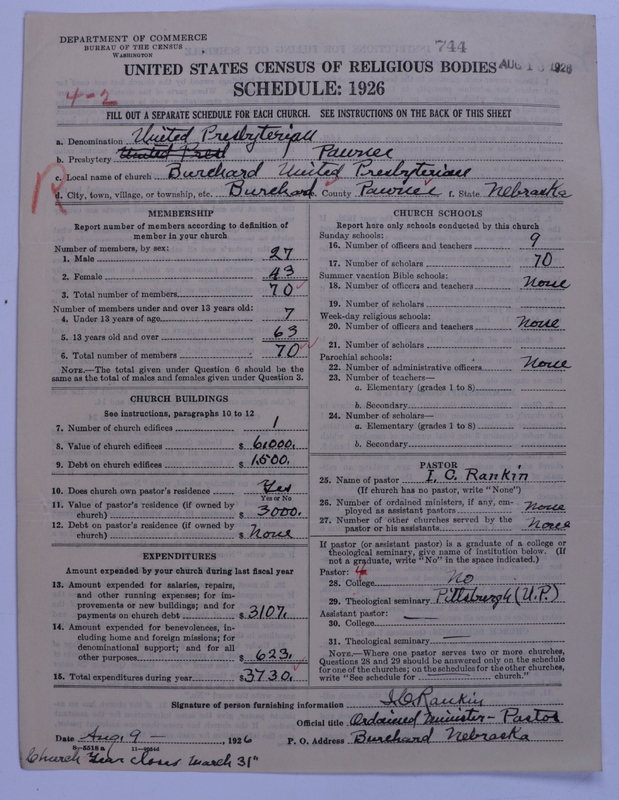 DEPARTMENT OF COMMERCE
BUREAU OF THE CENSUS
WASHINGTON
744
AUG 1 1926
UNITED STATES CENSUS OF RELIGIOUS BODIES
SCHEDULE: 1926
4-2
FILL OUT A SEPARATE SCHEDULE FOR EACH CHURCH. SEE INSTRUCTIONS ON THE BACK OF THIS SHEET
a. Denomination United Presbyterian
b. Presbytery United Presb Pawnee
c. Local name of church Burchard United Presbyterian
R
d. City, town, village, or township, etc. Burchard e. County Pawnee f. State Nebraska
MEMBERSHIP
Report number of members according to definition of
member in your church
Number of members, by sex:
1. Male 27
2. Female 43
3. Total number of members 70
Number of members under and over 13 years old:
4. Under 13 years of age 7
5. 13 years old and over 63
6. Total number of members 70
NOTE.—The total given under Question 6 should be
same as the total of males and females given under Question 3.
CHURCH BUILDINGS
See instructions, paragraphs 10 to 12
7. Number of church edifices 1
8. Value of church edifices $ 6,000.
9. Debt on church edifices $ 1,500.
10. Does church own pastor's residence Yes
Yes or No
11. Value of pastor's residence (if owned by
church) $ 3000.
12. Debt on pastor's residence (if owned by
church) $ None
EXPENDITURES
Amount expended by your church during last fiscal year
13. Amount expended for salaries, repairs,
and other running expenses; for im-
provements or new buildings; and for
payments on church debt $ 3107.
14. Amount expended for benevolences, in-
cluding home and foreign missions; for
denominational support; and for all
other purposes $ 623.
15. Total expenditures during year $ 3730.
CHURCH SCHOOLS
Report here only schools conducted by this church
Sunday schools:
16. Number of officers and teachers 9
17. Number of scholars 70
Summer vacation Bible schools:
18. Number of officers and teachers None
19. Number of scholars
Week-day religious schools:
20. Number of officers and teachers None
21. Number of scholars
Parochial schools:
22. Number of administrative officers None
23. Number of teachers—
a. Elementary (grades 1 to 8)
b. Secondary
24. Number of scholars—
a. Elementary (grades 1 to 8)
b. Secondary
PASTOR
25. Name of pastor I. C. Rankin
(If church has no pastor, write "None")
26. Number of ordained ministers, if any, em-
ployed as assistant pastors None
27. Number of other churches served by the
pastor or his assistants None
If pastor (or assistant pastor) is a graduate of a college or
theological seminary, give name of institution below. (If
not a graduate, write "No" in the space indicated.)
Pastor: 4
28. College No
29. Theological seminary Pittsburgh (U.P.)
Assistant pastor:
30. College
31. Theological seminary
NOTE.—Where one pastor serves two or more churches,
Questions 28 and 29 should be answered only on the schedule
for one of the churches; on the schedules for the other churches,
write "See schedule for church."
Signature of person furnishing information I. C. Rankin
Official title Ordained Minister - Pastor
Date Aug. 9 -, 1926 P. O. Address Burchard Nebraska
8-5518a 11-
Church Year closes March 31"